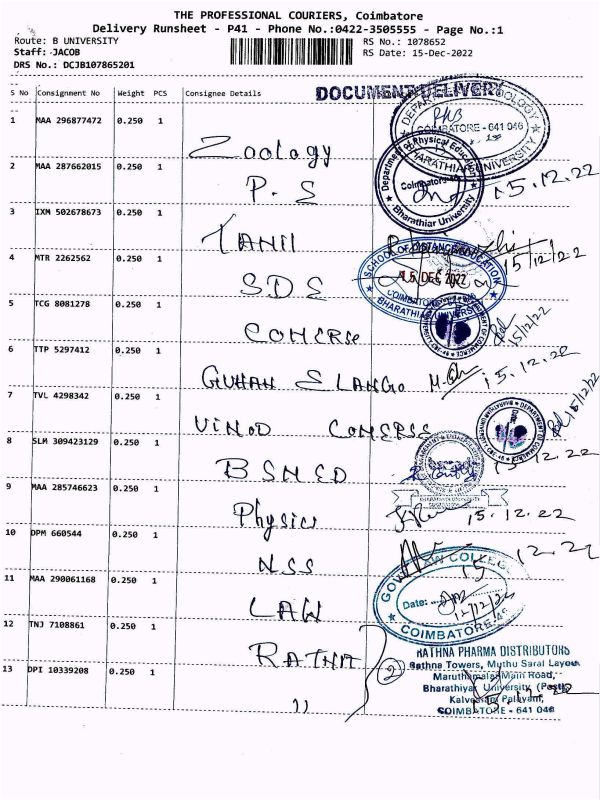 THE PROFESSIONAL COURIERS, Coimbatore
Delivery Runsheet - P41 - Phone No.:0422-3505555 - Page No.:1
Route: B UNIVERSITY RS No.: 1078652
Staff: JACOB RS Date: 15-Dec-2022
DRS No.: DCJB107865201
S No Consignment No Weight PCS Consignee Details DOCUMENT DELIVERY
1 MAA 296877472 0.250 1 Zoology
COIMBATORE - 641 046
2 MAA 287662015 0.250 1 P. S 15.12.22
Department of Physical Education
Coimbatore-46
Bharathiar University
3 IXM 502678673 0.250 1 TAMIL 15/12/22
4 MTR 2262562 0.250 1 SDE
SCHOOL OF DISTANCE EDUCATION
15 DEC 2022
COIMBATORE
BHARATHIAR UNIVERSITY
5 TCG 8081278 0.250 1 COMERSE 15/12/22
6 TTP 5297412 0.250 1 GUHAN ELANGO 15.12.22
7 TVL 4298342 0.250 1 VINOD COMERSE 15/12/22
8 SLM 309423129 0.250 1 BSMED 15.12.22
9 MAA 285746623 0.250 1 Physics 15.12.22
10 DPM 660544 0.250 1 NSS 15.12.22
11 MAA 290061168 0.250 1 LAW
GOVT LAW COLLEGE
Date: 15/12/22
COIMBATORE-46
12 TNJ 7108861 0.250 1 RATNA 2
13 DPI 10339208 0.250 1 11
RATHNA PHARMA DISTRIBUTORS
Rathna Towers, Muthu Saral Layout
Maruthamalai Main Road,
Bharathiyar University (Post)
Kalveeram Palayam,
COIMBATORE - 641 046